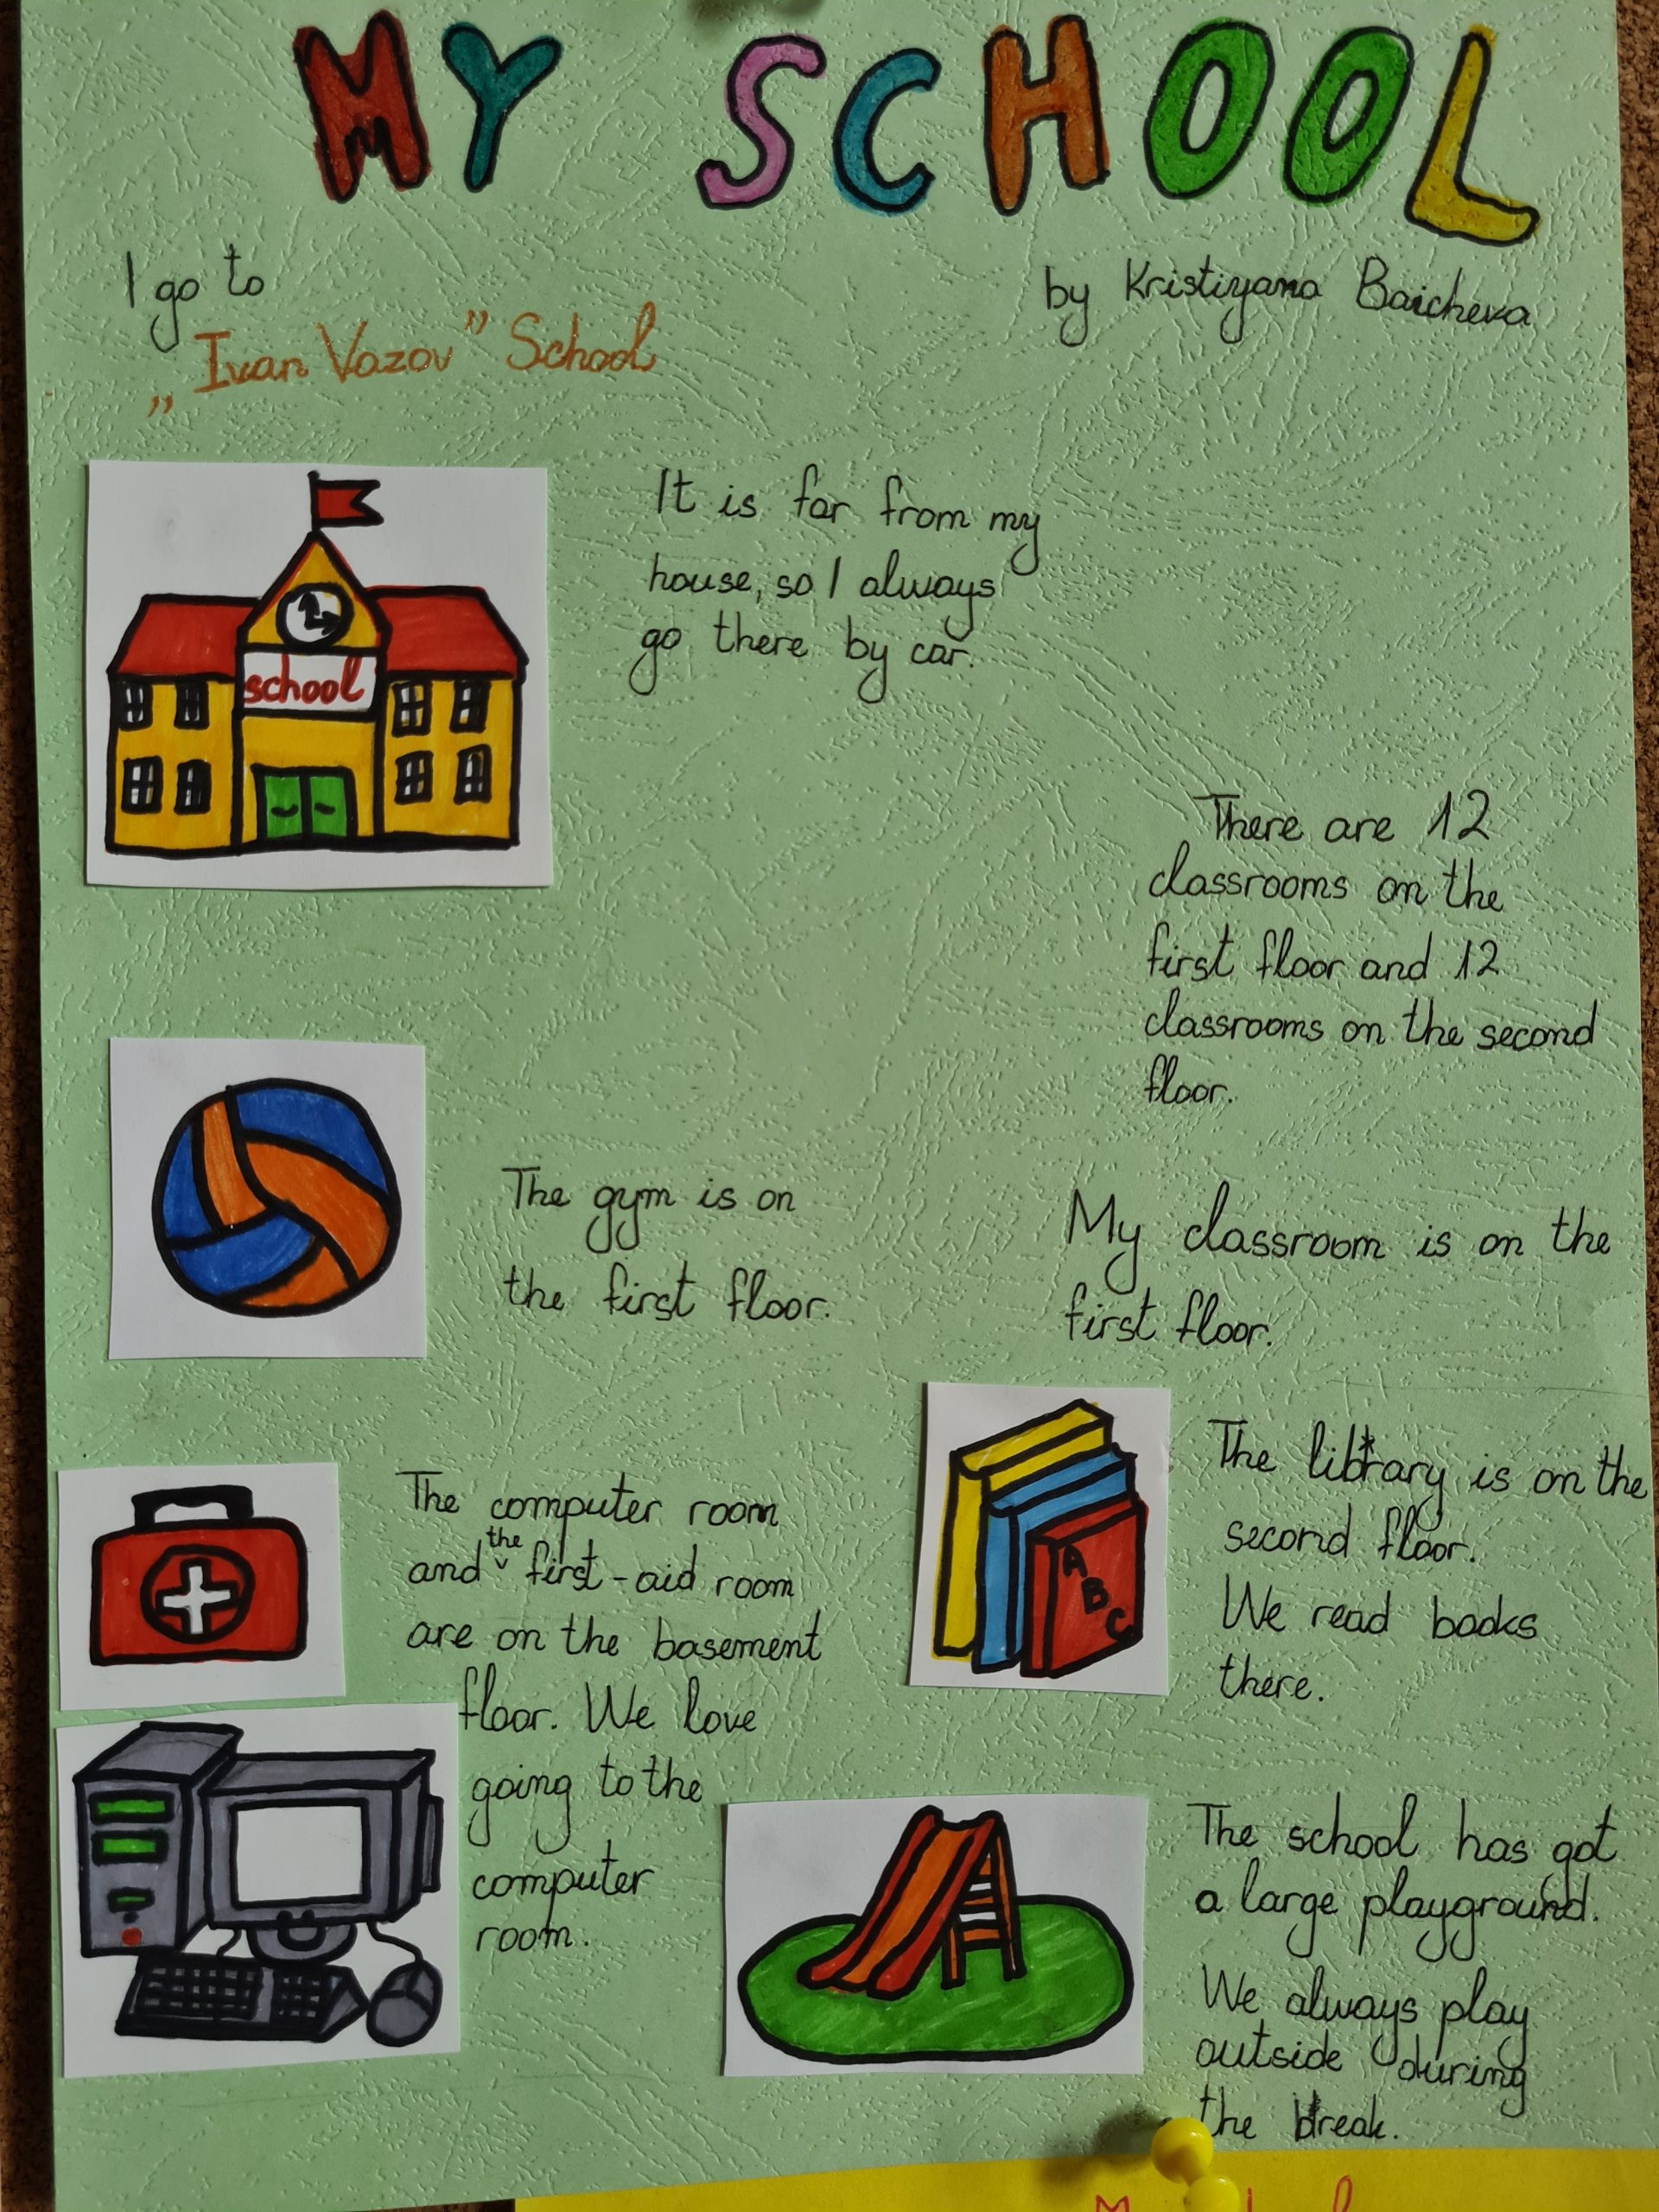 MY SCHOOL
by Kristiyana Baicheva
I go to
„Ivan Vazov” School
school
It is far from my
house, so I always
go there by car.
There are 12
classrooms on the
first floor and 12
classrooms on the second
floor.
The gym is on
the first floor.
My classroom is on the
first floor.
The computer room
and the first-aid room
are on the basement
floor. We love
going to the
computer
room.
A
B
C
The library is on the
second floor.
We read books
there.
The school has got
a large playground.
We always play
outside during
the break.